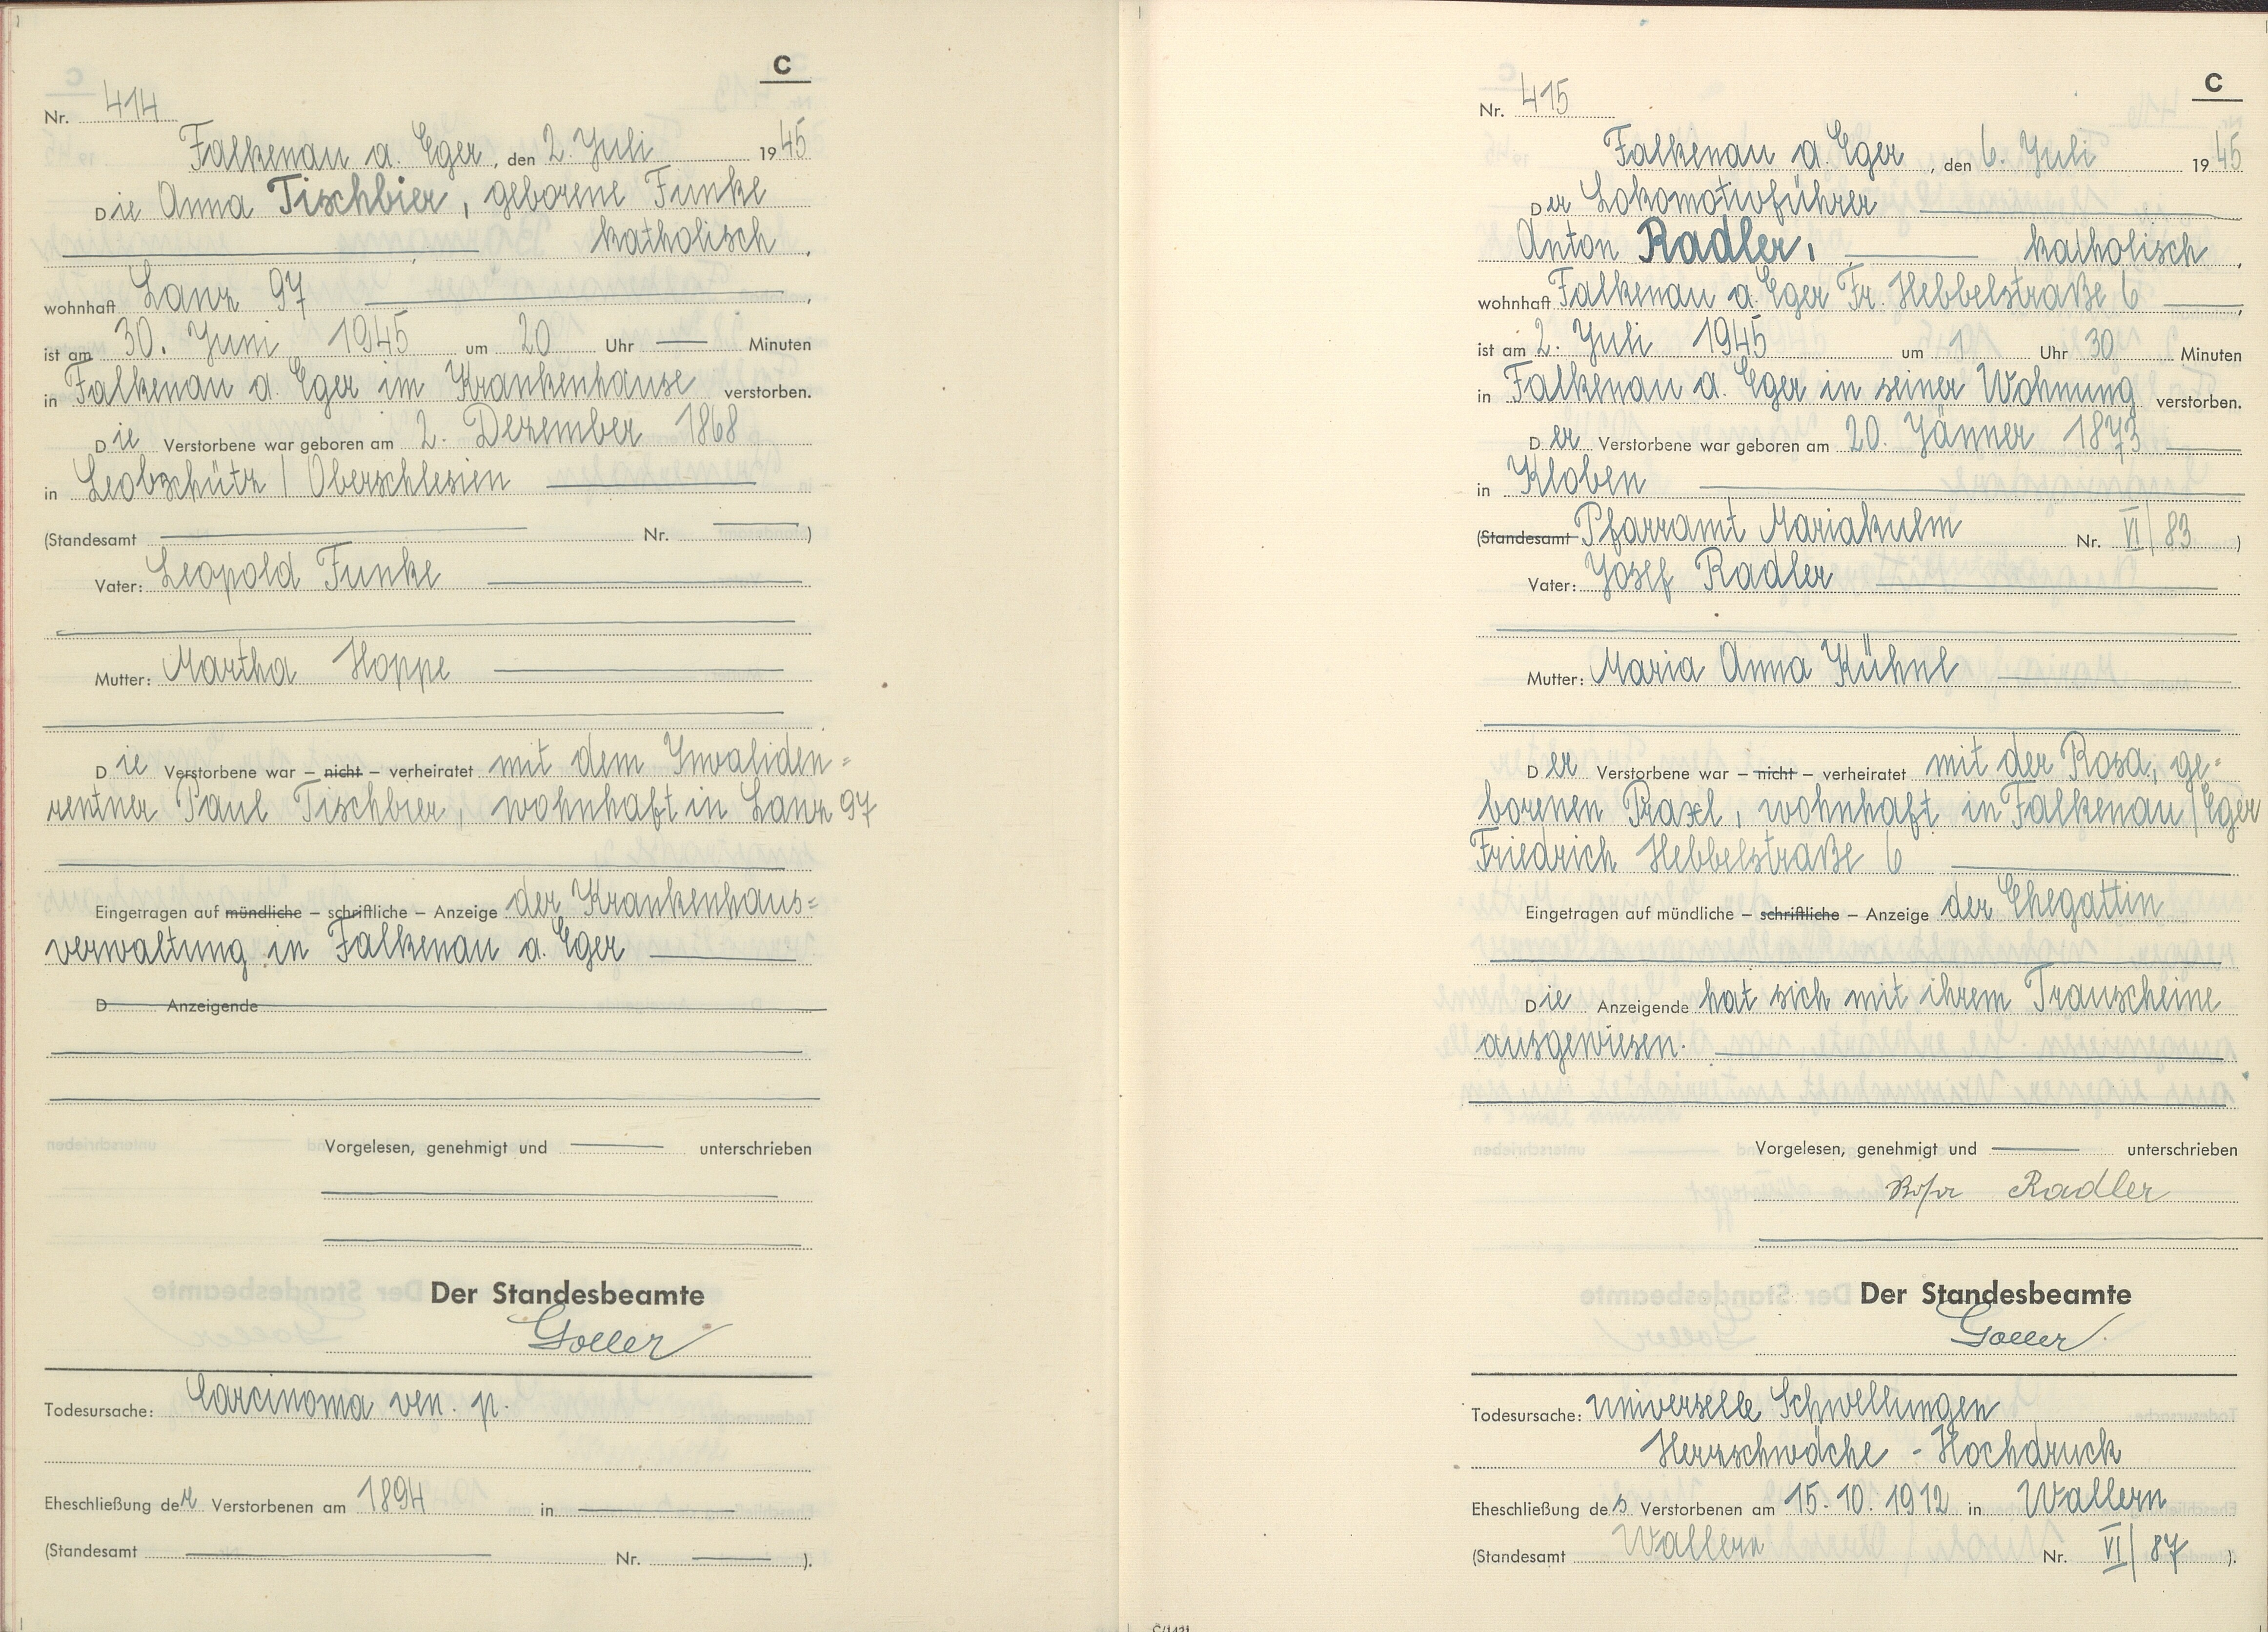 C
Nr. 414
Falkenau a. Eger, den 2. Juli 1945
Die Anna Tischbier, geborene Funke
katholisch,
wohnhaft Lanz 97,
ist am 30. Juni 1945 um 20 Uhr — Minuten
in Falkenau a. Eger im Krankenhause verstorben.
Die Verstorbene war geboren am 2. Dezember 1868
in Leobschütz / Oberschlesien
(Standesamt — Nr. —)
Vater: Leopold Funke
Mutter: Martha Hoppe
Die Verstorbene war – nicht – verheiratet mit dem Invaliden=
rentner Paul Tischbier, wohnhaft in Lanz 97
Eingetragen auf mündliche – schriftliche – Anzeige der Krankenhaus=
verwaltung in Falkenau a. Eger
D Anzeigende
Vorgelesen, genehmigt und — unterschrieben
Der Standesbeamte
Goller
Todesursache: Carcinoma ven. p.
Eheschließung der Verstorbenen am 1894 in —
(Standesamt — Nr. —).
C
Nr. 415
Falkenau a. Eger, den 6. Juli 1945
Der Lokomotivführer
Anton Radler, — katholisch,
wohnhaft Falkenau a. Eger Fr. Hebbelstraße 6,
ist am 2. Juli 1945 um 1 Uhr 30 Minuten
in Falkenau a. Eger in seiner Wohnung verstorben.
Der Verstorbene war geboren am 20. Jänner 1873
in Kloben
(Standesamt Pfarramt Mariakulm Nr. VI/83)
Vater: Josef Radler
Mutter: Maria Anna Kühnl
Der Verstorbene war – nicht – verheiratet mit der Rosa, ge=
borenen Praxl, wohnhaft in Falkenau/Eger
Friedrich Hebbelstraße 6
Eingetragen auf mündliche – schriftliche – Anzeige der Ehegattin
Die Anzeigende hat sich mit ihrem Trauscheine
ausgewiesen.
Vorgelesen, genehmigt und — unterschrieben
Rosa Radler
Der Standesbeamte
Goller
Todesursache: universelle Schwellungen
Herzschwäche - Hochdruck
Eheschließung des Verstorbenen am 15. 10. 1912 in Wallern
(Standesamt Wallern Nr. VI/87).